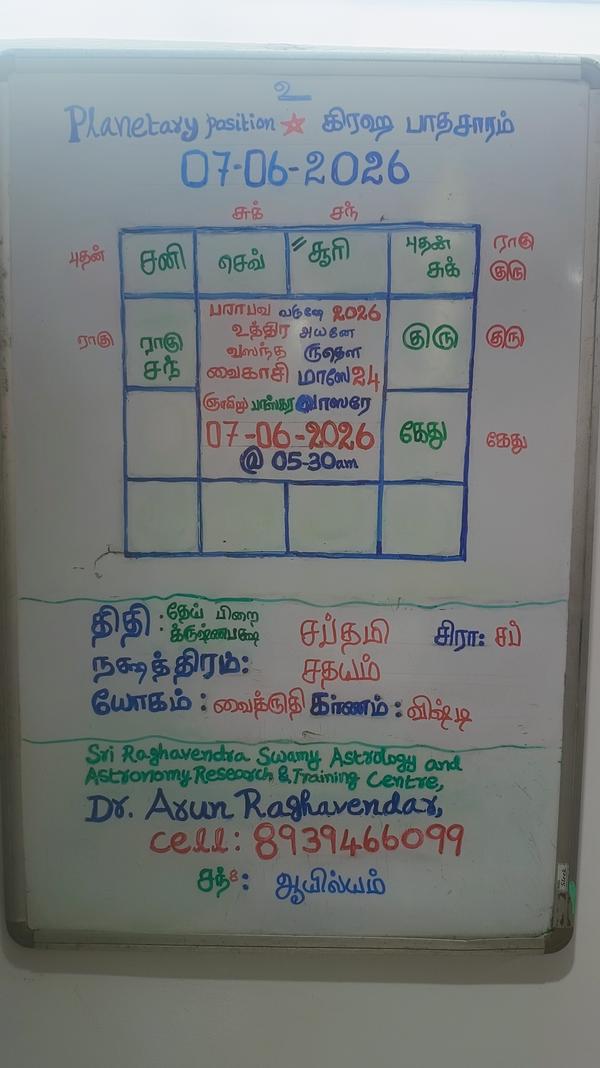 உ
Planetary position ☆ கிரஹ பாதசாரம்
07-06-2026
சுக் சந்
புதன் சனி செவ் சூரி புதன் சுக் ராகு குரு
ராகு ராகு சந் குரு குரு
பராபவ வருஷே 2026
உத்திர அயனே
வஸந்த ருதௌ
வைகாசி மாஸே 24
ஞாயிறு பாஸ்கர வாஸரே
07-06-2026
@ 05-30am
கேது கேது
திதி : தேய் பிறை
க்ருஷ்ணபக்ஷே சப்தமி சிரா: சப்
நக்ஷத்திரம்: சதயம்
யோகம் : வைத்ருதி கர்ணம் : விஷ்டி
Sri Raghavendra Swamy Astrology and
Astronomy Research & Training Centre,
Dr. Arun Raghavendar,
cell: 8939466099
ஆயில்யம்